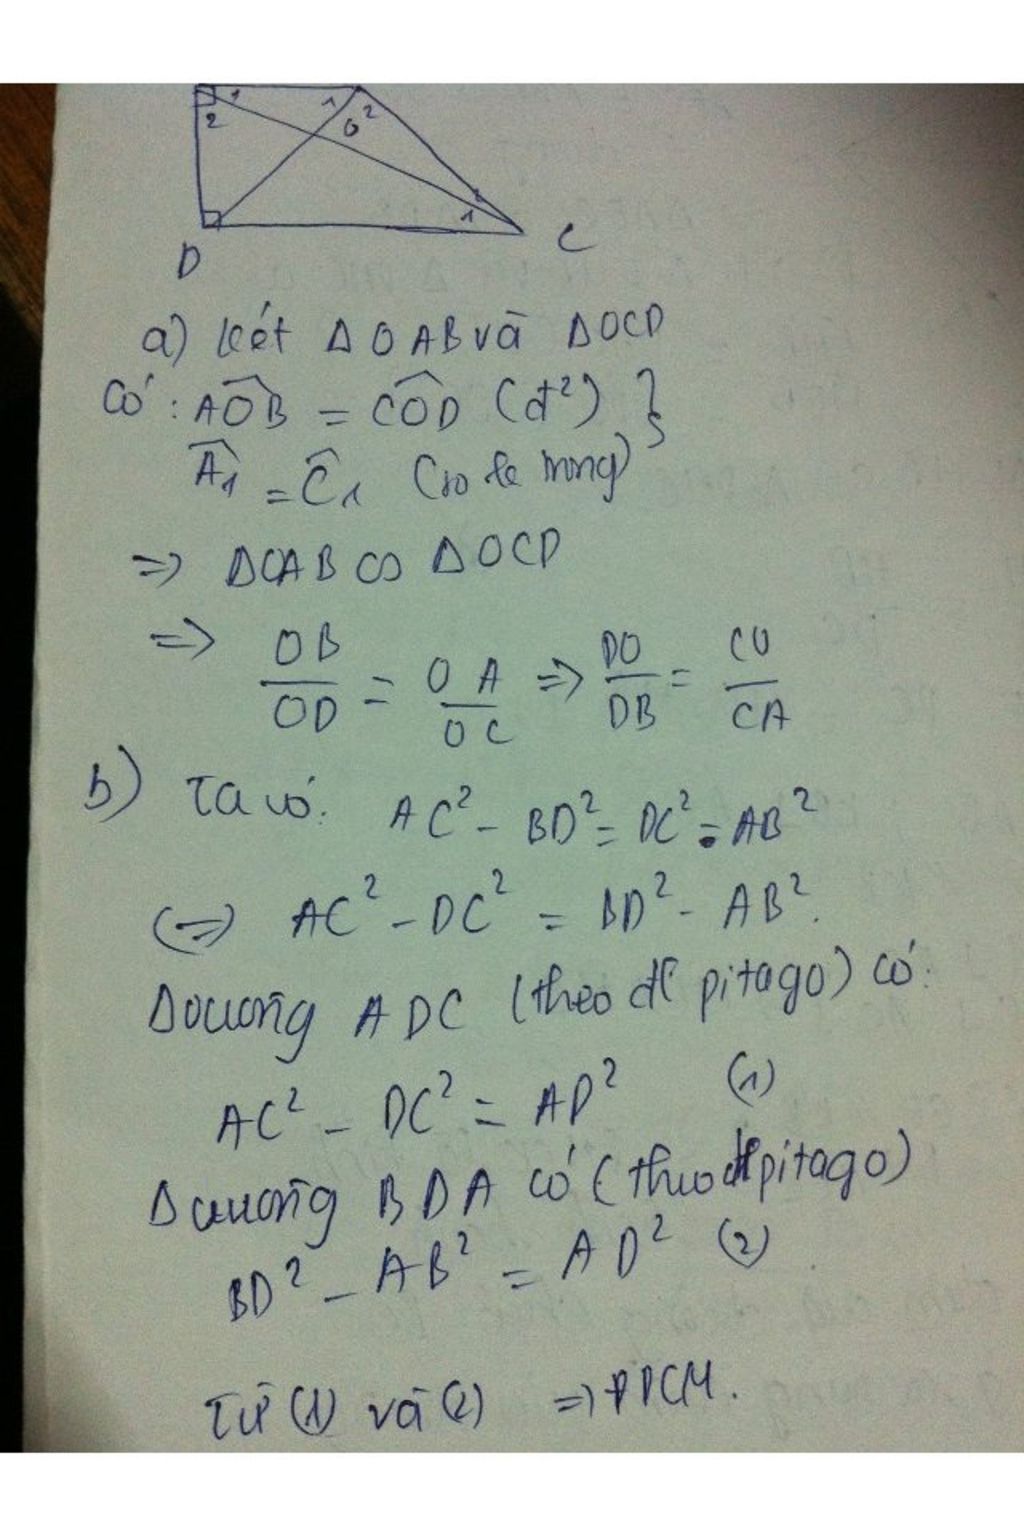 1 1 2
2 O
1
D C
a) Xét Δ OAB và Δ OCD
Có: AOB = COD (đ²) }
A1 = C1 (so le trong)
=> ΔOAB ∽ ΔOCD
=> OB/OD = OA/OC => DO/DB = CO/CA
b) Ta có: AC² - BD² = DC² - AB²
(=>) AC² - DC² = BD² - AB².
Δvuông ADC (theo đl pitago) có:
AC² - DC² = AD² (1)
Δvuông BDA có (theo đl pitago)
BD² - AB² = AD² (2)
Từ (1) và (2) => ĐPCM.